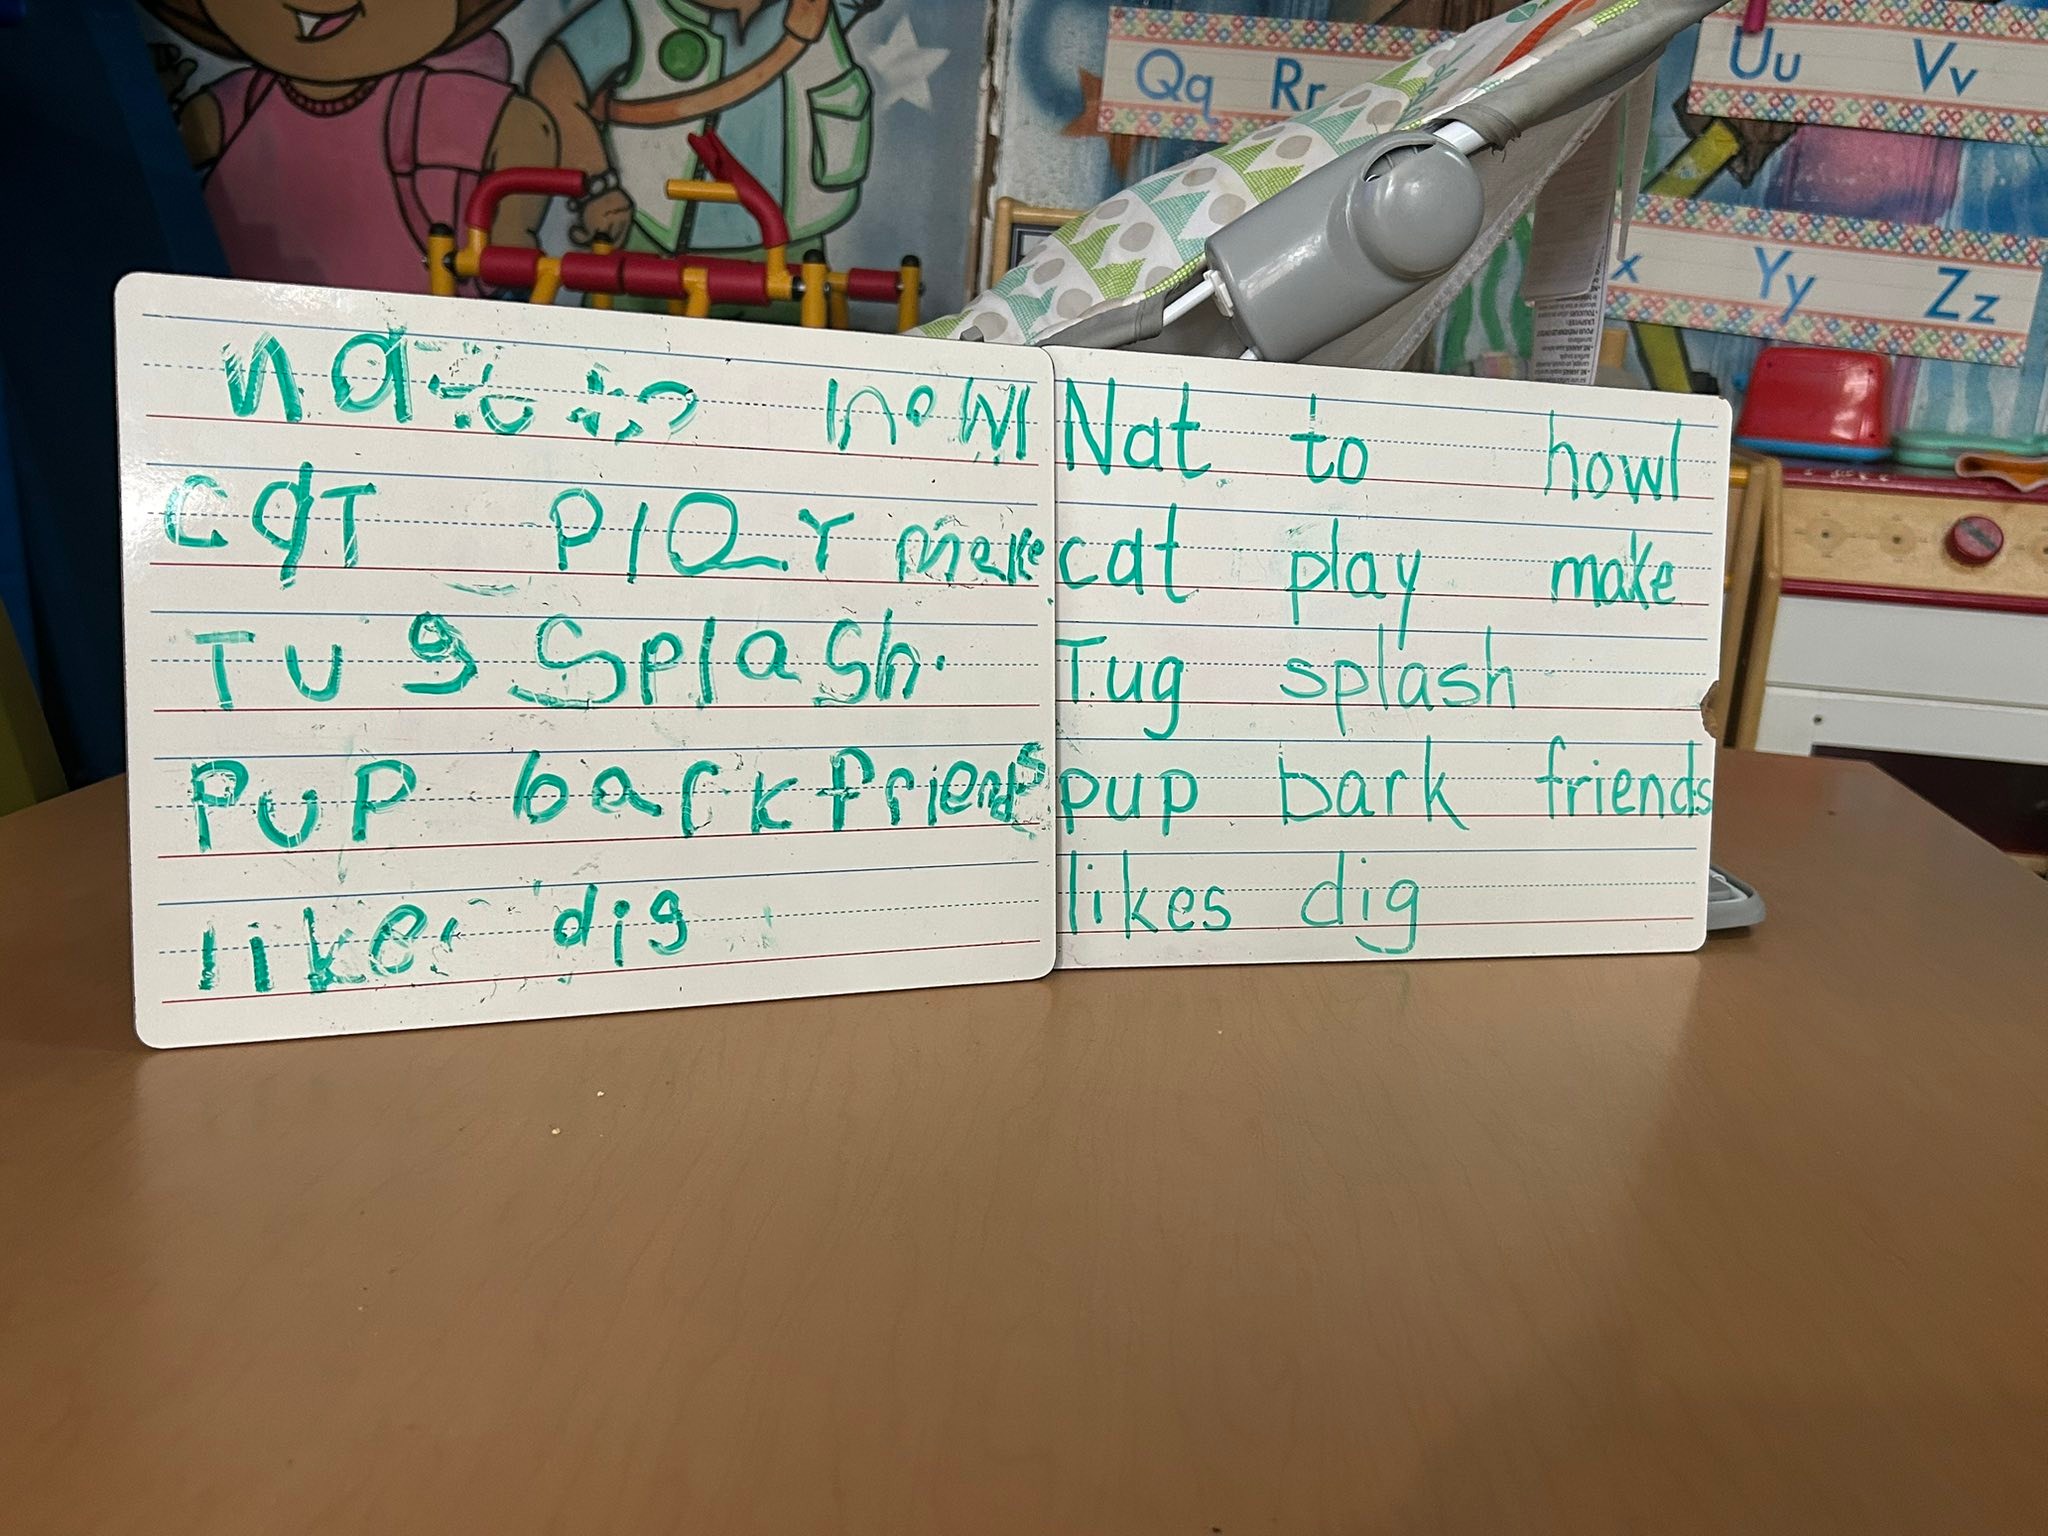 Qq Rr
Uu Vv
x Yy Zz
howl
caT PlaY make
TUg SplaSh.
PUP bark friends
like dig
Nat to howl
cat play make
Tug splash
pup bark friends
likes dig